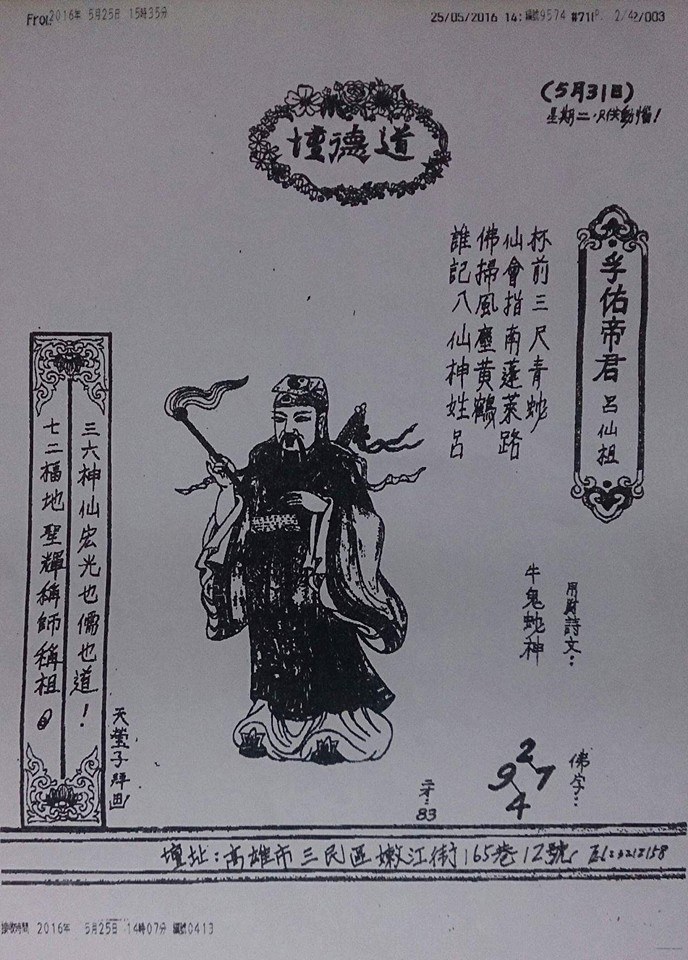 2016年 5月25日 15時35分
25/05/2016 14: 編號9574 #711P. 2/4
2/003
(5月31日)
道德壇
孚佑帝君 呂仙祖
杯前三尺青蛇
仙會指南蓬萊路
佛掃風塵黃鶴
誰記八仙神姓呂
三六神仙宏光也儒也道!
七二福地聖輝稱師稱祖。
天瑩子拜画
用財詩文:
牛鬼蛇神
佛字:
2
9 7
4
83
壇址:高雄市三民區嫩江街165巷12號
接收時間 2016年 5月25日 14時07分 編號0413